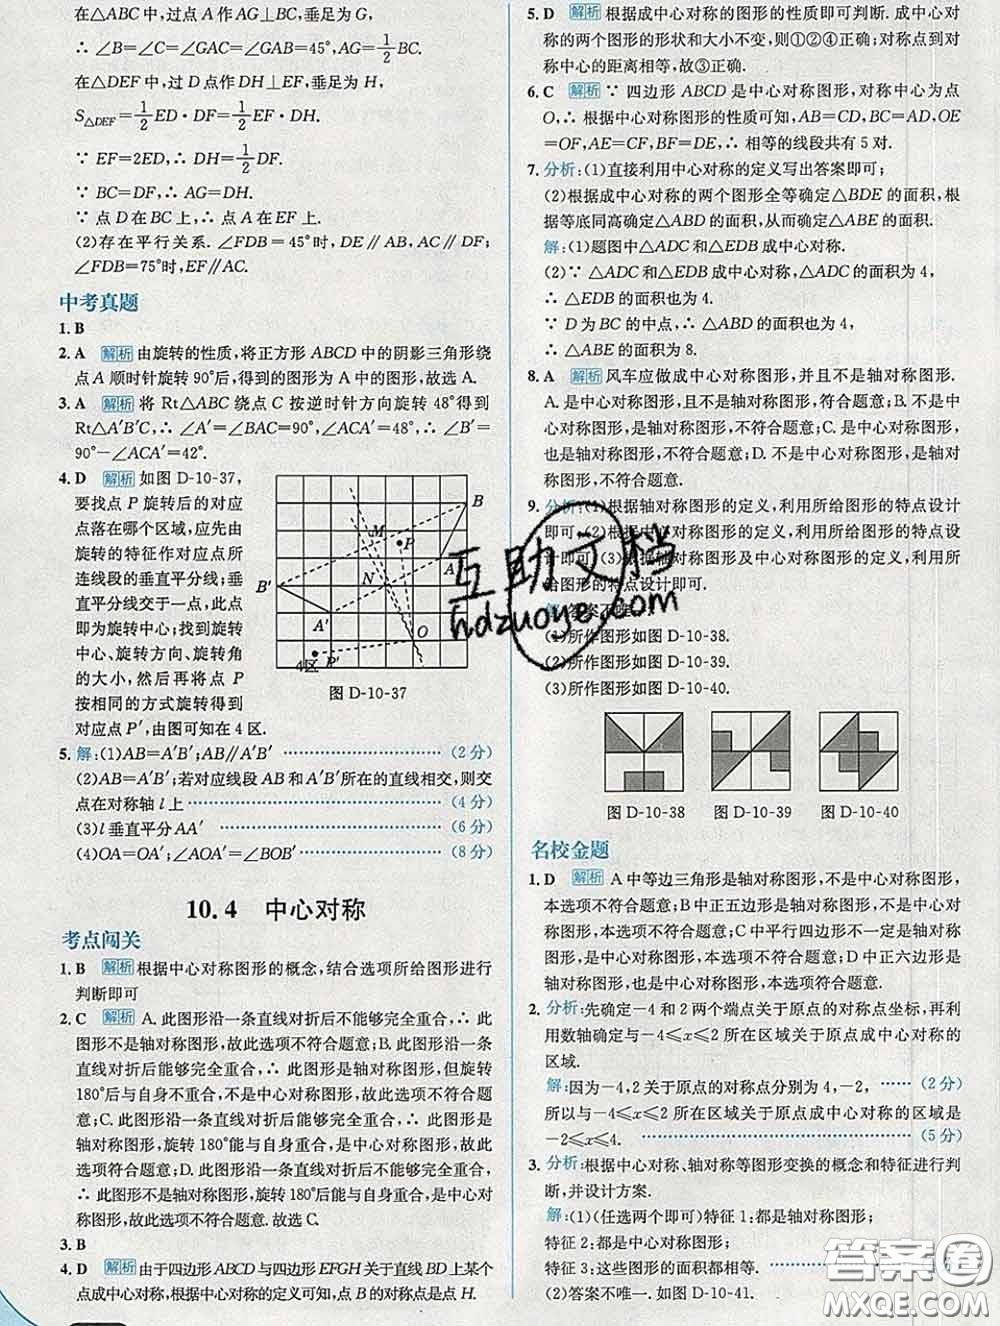 在△ABC中,过点A作AG⊥BC,垂足为G,
∴ ∠B=∠C=∠GAC=∠GAB=45°,AG=1/2BC.
在△DEF中,过D点作DH⊥EF,垂足为H,
S△DEF=1/2ED·DF=1/2EF·DH.
∵ EF=2ED,∴ DH=1/2DF.
∵ BC=DF,∴ AG=DH.
∵ 点D在BC上,∴ 点A在EF上.
(2)存在平行关系. ∠FDB=45°时,DE∥AB,AC∥DF;
∠FDB=75°时,EF∥AC.
中考真题
1. B
2. A 解析 由旋转的性质,将正方形ABCD中的阴影三角形绕
点A顺时针旋转90°后,得到的图形为A中的图形,故选A.
3. A 解析 将Rt△ABC绕点C按逆时针方向旋转48°得到
Rt△A′B′C,∴ ∠A′=∠BAC=90°,∠ACA′=48°,∴ ∠B′=
90°-∠ACA′=42°.
4. D 解析 如图D-10-37,
要找点P旋转后的对应
点落在哪个区域,应先由
旋转的特征作对应点所
连线段的垂直平分线;垂
直平分线交于一点,此点
即为旋转中心;找到旋转
中心、旋转方向、旋转角
的大小,然后再将点P
按相同的方式旋转得到
对应点P′,由图可知在4区.
B
M
P
A
B′
N
A′
O
4区 P′
图D-10-37
5. 解:(1)AB=A′B′;AB∥A′B′ (2分)
(2)AB=A′B′;若对应线段AB和A′B′所在的直线相交,则交
点在对称轴l上 (4分)
(3)l垂直平分AA′ (6分)
(4)OA=OA′;∠AOA′=∠BOB′ (8分)
10.4 中心对称
考点闯关
1. B 解析 根据中心对称图形的概念,结合选项所给图形进行
判断即可
2. C 解析 A. 此图形沿一条直线对折后不能够完全重合,∴ 此
图形不是轴对称图形,故此选项不符合题意;B. 此图形沿一条
直线对折后能够完全重合,∴ 此图形是轴对称图形,但旋转
180°后与自身不重合,不是中心对称图形,故此选项不符合题
意;C. 此图形沿一条直线对折后能够完全重合,∴ 此图形是
轴对称图形,旋转180°能与自身重合,是中心对称图形,故此
选项符合题意;D. 此图形沿一条直线对折后不能够完全重合,
∴ 此图形不是轴对称图形,旋转180°后能与自身重合,是中心对
称图形,故此选项不符合题意. 故选C.
3. B
4. D 解析 由于四边形ABCD与四边形EFGH关于直线BD上某个
点成中心对称,根据中心对称的定义可知,点B的对称点是点H.
5. D 解析 根据成中心对称的图形的性质即可判断. 成中心对
称的两个图形的形状和大小不变,则①②④正确;对称点到对
称中心的距离相等,故③正确.
6. C 解析 ∵ 四边形ABCD是中心对称图形,对称中心为点
O,∴ 根据中心对称图形的性质可知,AB=CD,BC=AD,OE
=OF,AE=CF,BF=DE,∴ 相等的线段共有5对.
7. 分析:(1)直接利用中心对称的定义写出答案即可;
(2)根据成中心对称的两个图形全等确定△BDE的面积,根
据等底同高确定△ABD的面积,从而确定△ABE的面积.
解:(1)题图中△ADC和△EDB成中心对称.
(2)∵ △ADC和△EDB成中心对称,△ADC的面积为4,
∴ △EDB的面积也为4.
∵ D为BC的中点,∴ △ABD的面积也为4,
∴ △ABE的面积为8.
8. A 解析 风车应做成中心对称图形,并且不是轴对称图形.
A. 是中心对称图形,且不是轴对称图形,符合题意;B. 不是中
心对称图形,是轴对称图形,不符合题意;C. 是中心对称图形,
也是轴对称图形,不符合题意;D. 不是中心对称图形,是轴对
称图形,不符合题意.
9. 分析:(1)根据轴对称图形的定义,利用所给图形的特点设计
即可;(2)根据中心对称图形的定义,利用所给图形的特点设
计即可;(3)根据轴对称图形及中心对称图形的定义,利用所
给图形的特点设计即可.
解:答案不唯一.
(1)所作图形如图D-10-38.
(2)所作图形如图D-10-39.
(3)所作图形如图D-10-40.
图D-10-38 图D-10-39 图D-10-40
名校金题
1. D 解析 A中等边三角形是轴对称图形,不是中心对称图形,
本选项不符合题意;B中正五边形是轴对称图形,不是中心对
称图形,本选项不符合题意;C中平行四边形不一定是轴对称
图形,是中心对称图形,本选项不符合题意;D中正六边形是
轴对称图形,也是中心对称图形,本选项符合题意.
2. 分析:先确定-4和2两个端点关于原点的对称点坐标,再利
用数轴确定与-4≤x≤2所在区域关于原点成中心对称的
区域.
解:因为-4,2关于原点的对称点分别为4,-2, (2分)
所以与-4≤x≤2所在区域关于原点成中心对称的区域是
-2≤x≤4. (5分)
3. 分析:根据中心对称、轴对称等图形变换的概念和特征进行判
断,并设计方案.
解:(1)(任选两个即可)特征1:都是轴对称图形;
特征2:都是中心对称图形;
特征3:这些图形的面积都相等.
(2)答案不唯一. 如图D-10-41.
互助文档
hdzuoye.com
答案圈
MXQE.COM